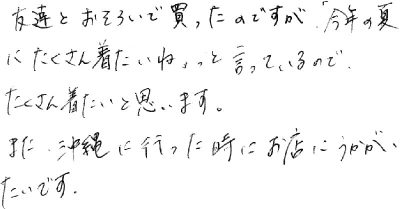 友達とおそろいで買ったのですが、「今年の夏
にたくさん着たいね」っと言っているので、
たくさん着たいと思います。
また、沖縄に行った時にお店にうかがい
たいです。